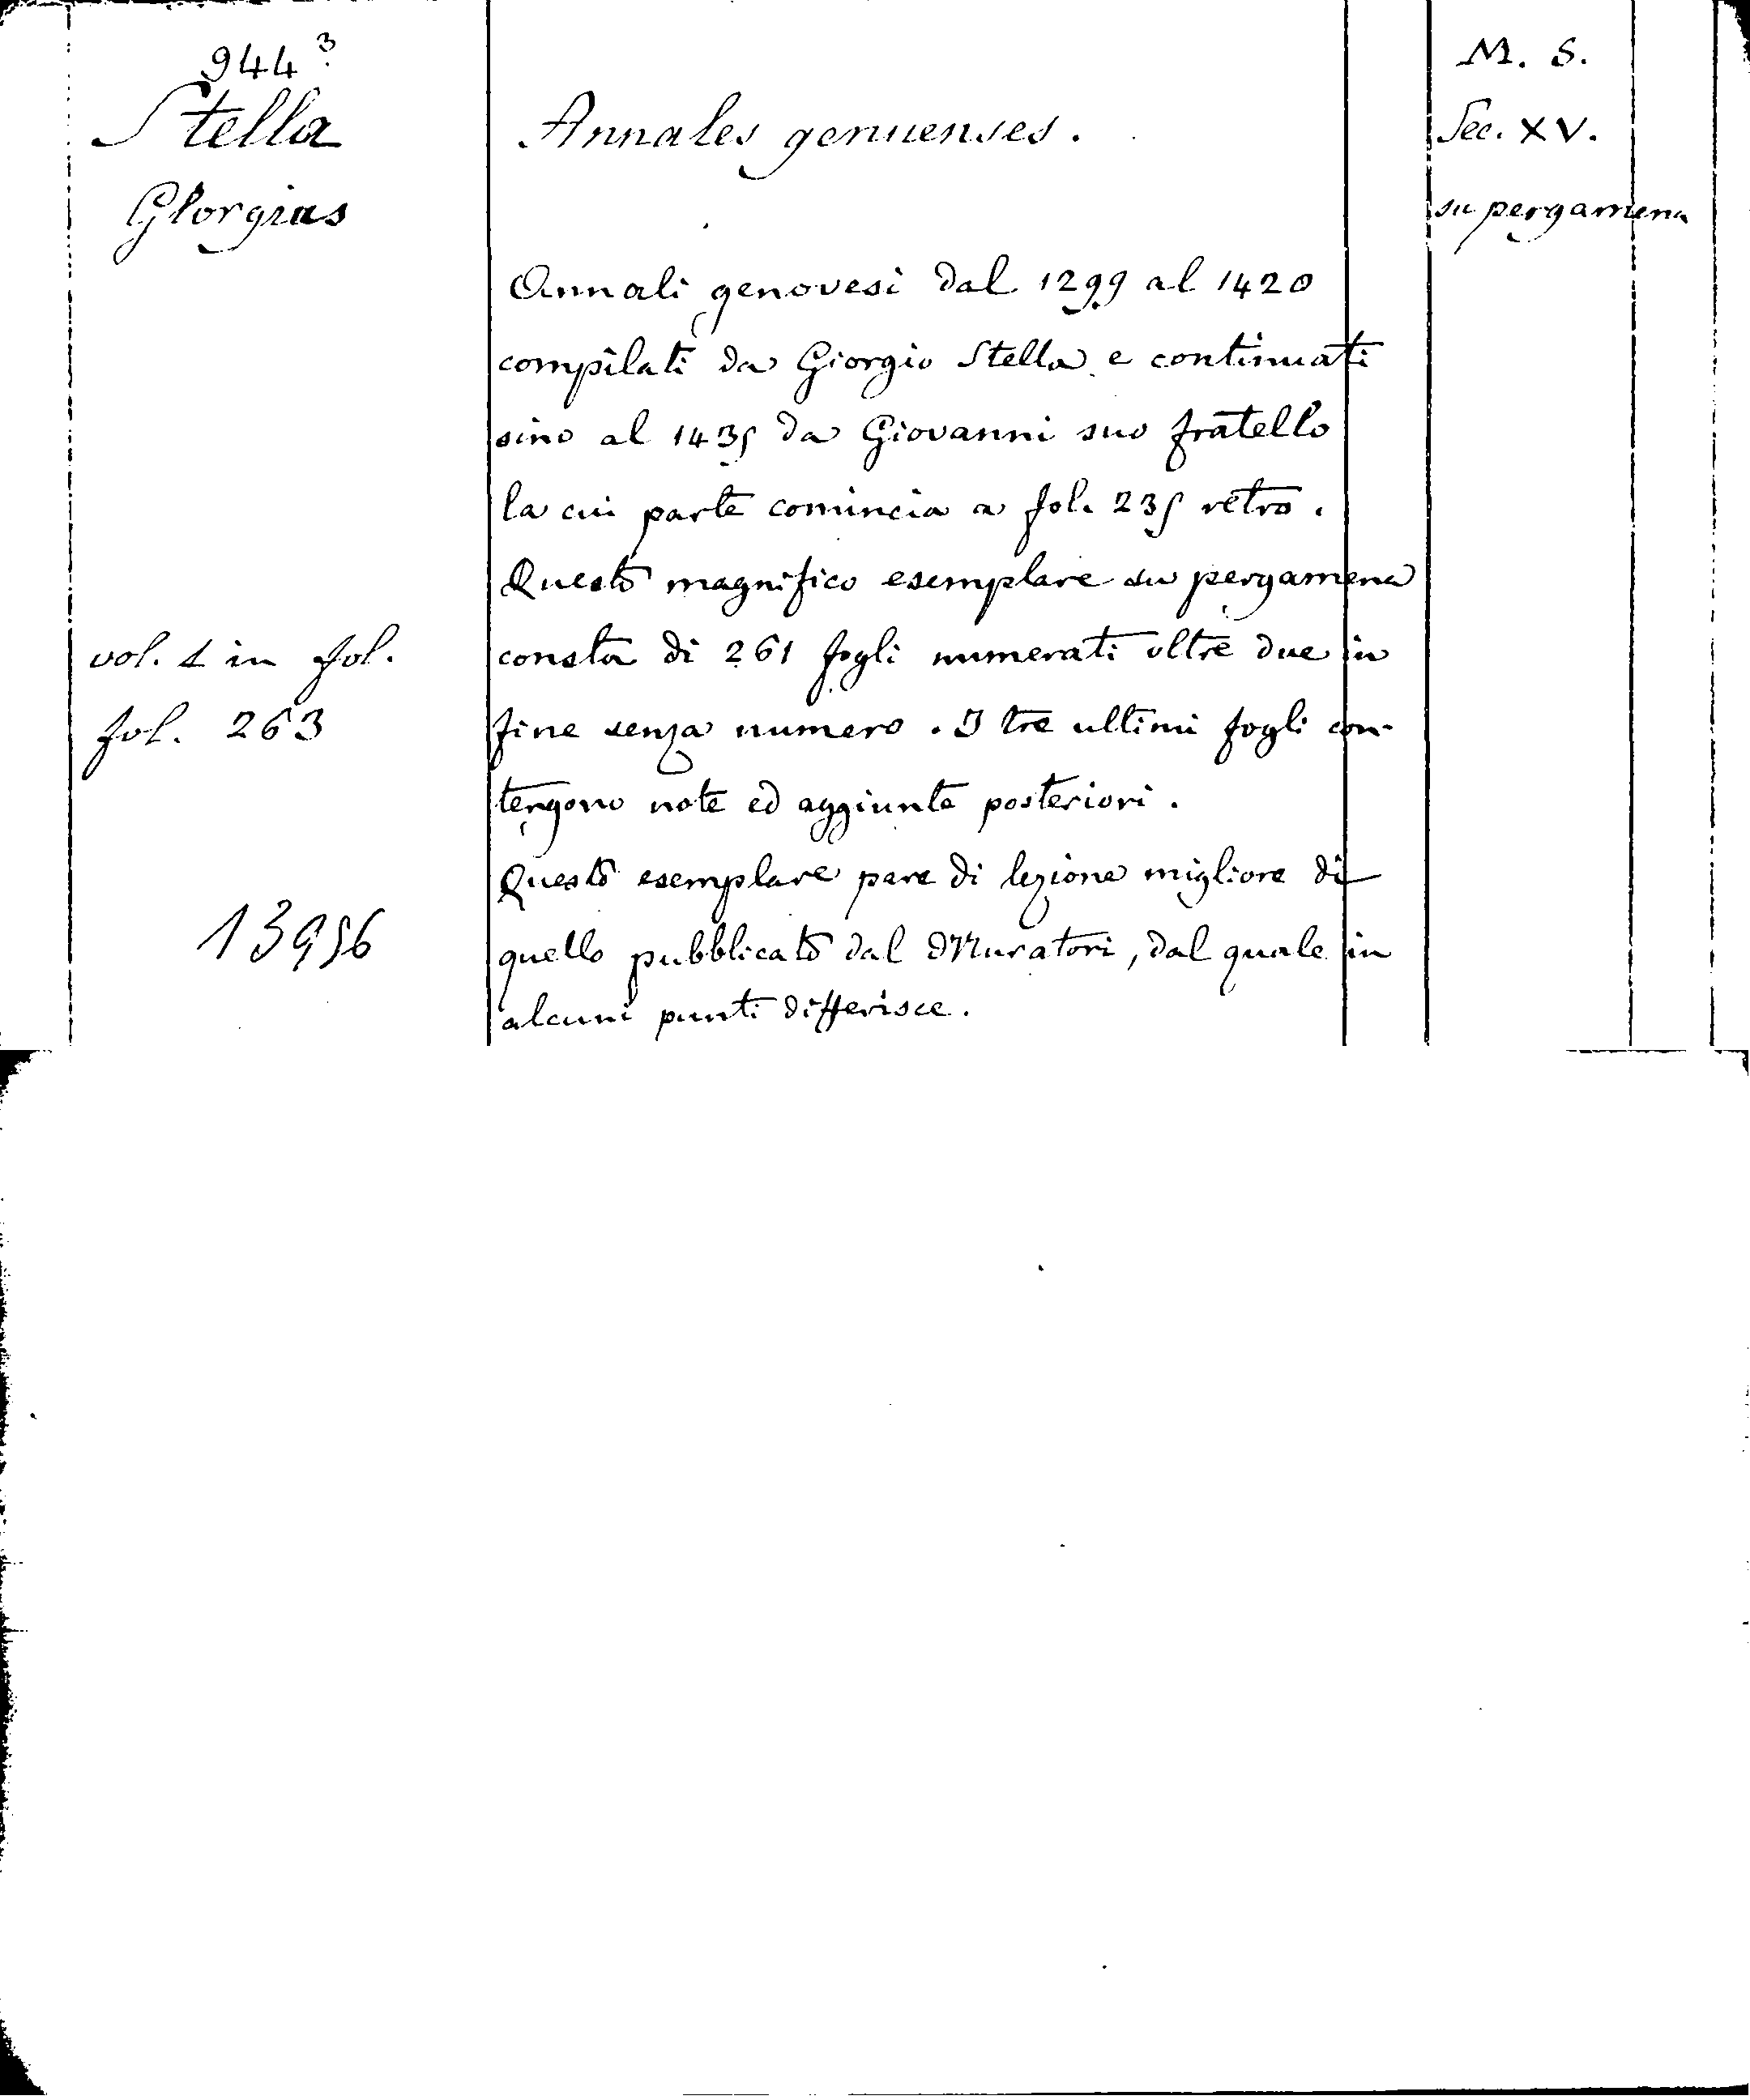 944 3
Stella
Georgius
vol. 1 in fol.
fol. 263
13956
Annales genuenses.
Annali genovesi dal 1299 al 1420
compilati da Giorgio Stella e continuati
sino al 1435 da Giovanni suo fratello
la cui parte comincia a fol. 235 retro.
Questo magnifico esemplare su pergamena
consta di 261 fogli numerati oltre due in
fine senza numero. I tre ultimi fogli con-
tengono note ed aggiunte posteriori.
Questo esemplare pare di lezione migliore di
quello pubblicato dal Muratori, dal quale in
alcuni punti differisce.
M. S.
Sec. XV.
su pergamena